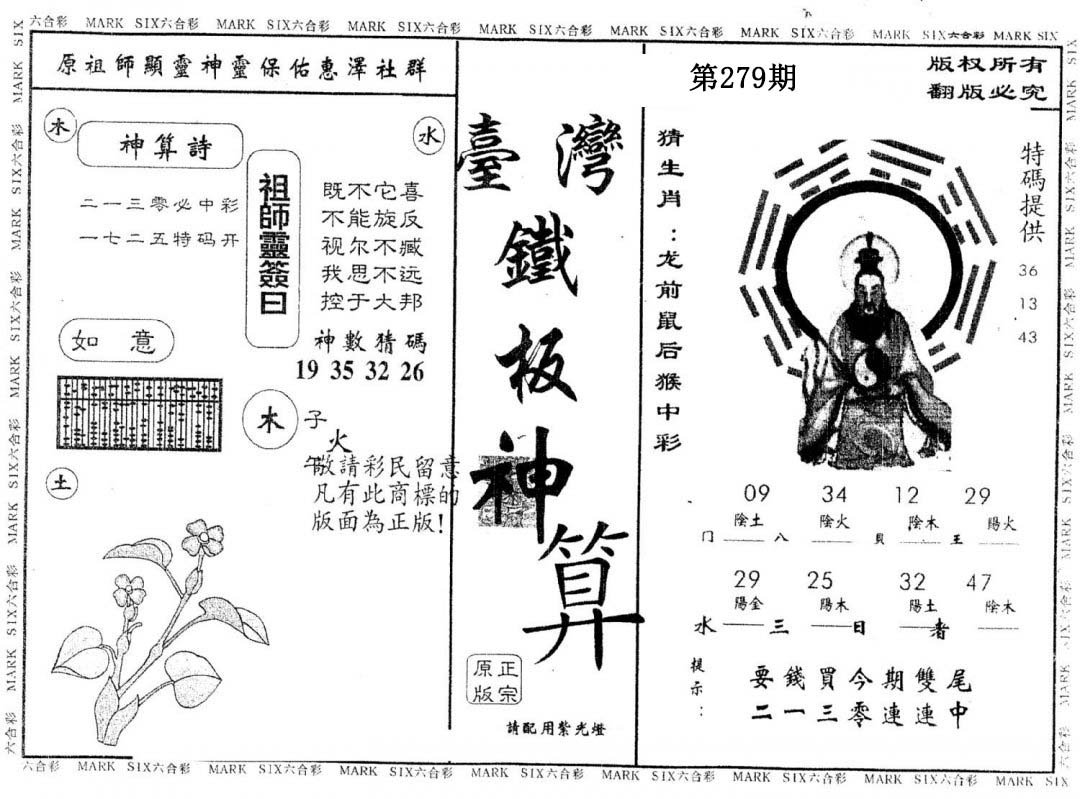 六合彩 MARK SIX六合彩 MARK SIX六合彩 MARK SIX六合彩 MARK SIX六合彩 MARK SIX六合彩 MARK SIX六合彩 MARK SIX六合彩 MARK SIX
原祖師顯靈神靈保佑惠澤社群
木
神算詩
水
二一三零必中彩
一七二五特码开
祖師靈簽曰
既不它喜
不能旋反
视尔不臧
我思不远
控于大邦
神數猜碼
19 35 32 26
如意
木
子
火
午
敬請彩民留意
凡有此商標的
版面為正版!
土
臺灣
鐵
板
神
算
正宗
原版
請配用紫光燈
第279期
版权所有
翻版必究
猜生肖：龙前鼠后猴中彩
特碼提供
36
13
43
09 34 12 29
陰土 陰火 陰木 陽火
门 八 貝 王
29 25 32 47
陽金 陽木 陽土 陰木
水 三 日 者
提示：
要錢買今期雙尾
二一三零連連中
六合彩 MARK SIX六合彩 MARK SIX六合彩 MARK SIX六合彩 MARK SIX六合彩 MARK SIX六合彩 MARK SIX六合彩 MARK SIX六合彩 MARK SIX